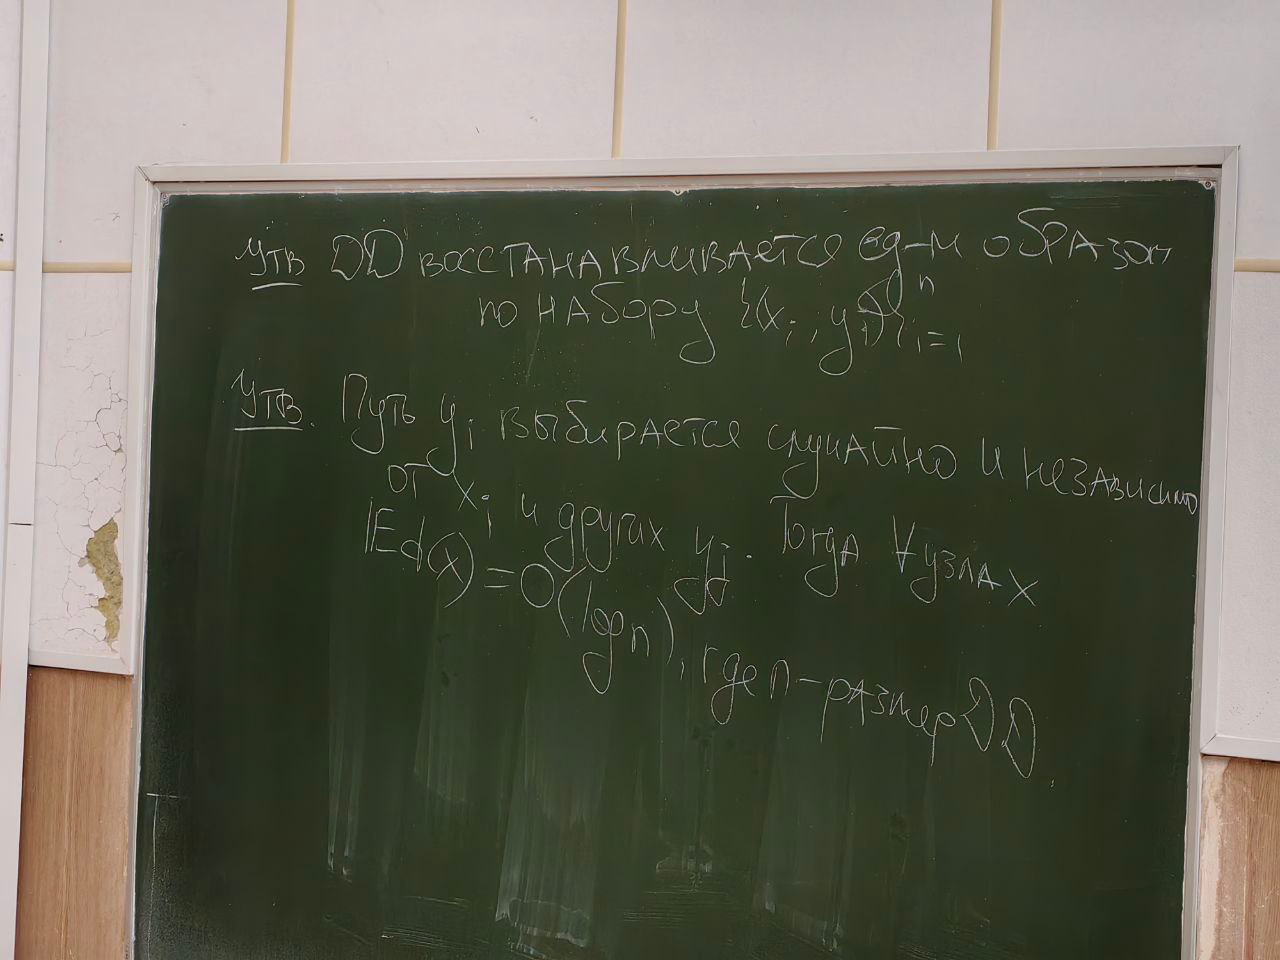 Утв DD восстанавливается ед-м образом
по набору {(x_i, y_i)}_{i=1}^n
Утв. Путь y_i выбирается случайно и независимо
от x_i и других y_j. Тогда ∀ узла x
𝔼d(x) = O(log n), где n - размер DD.